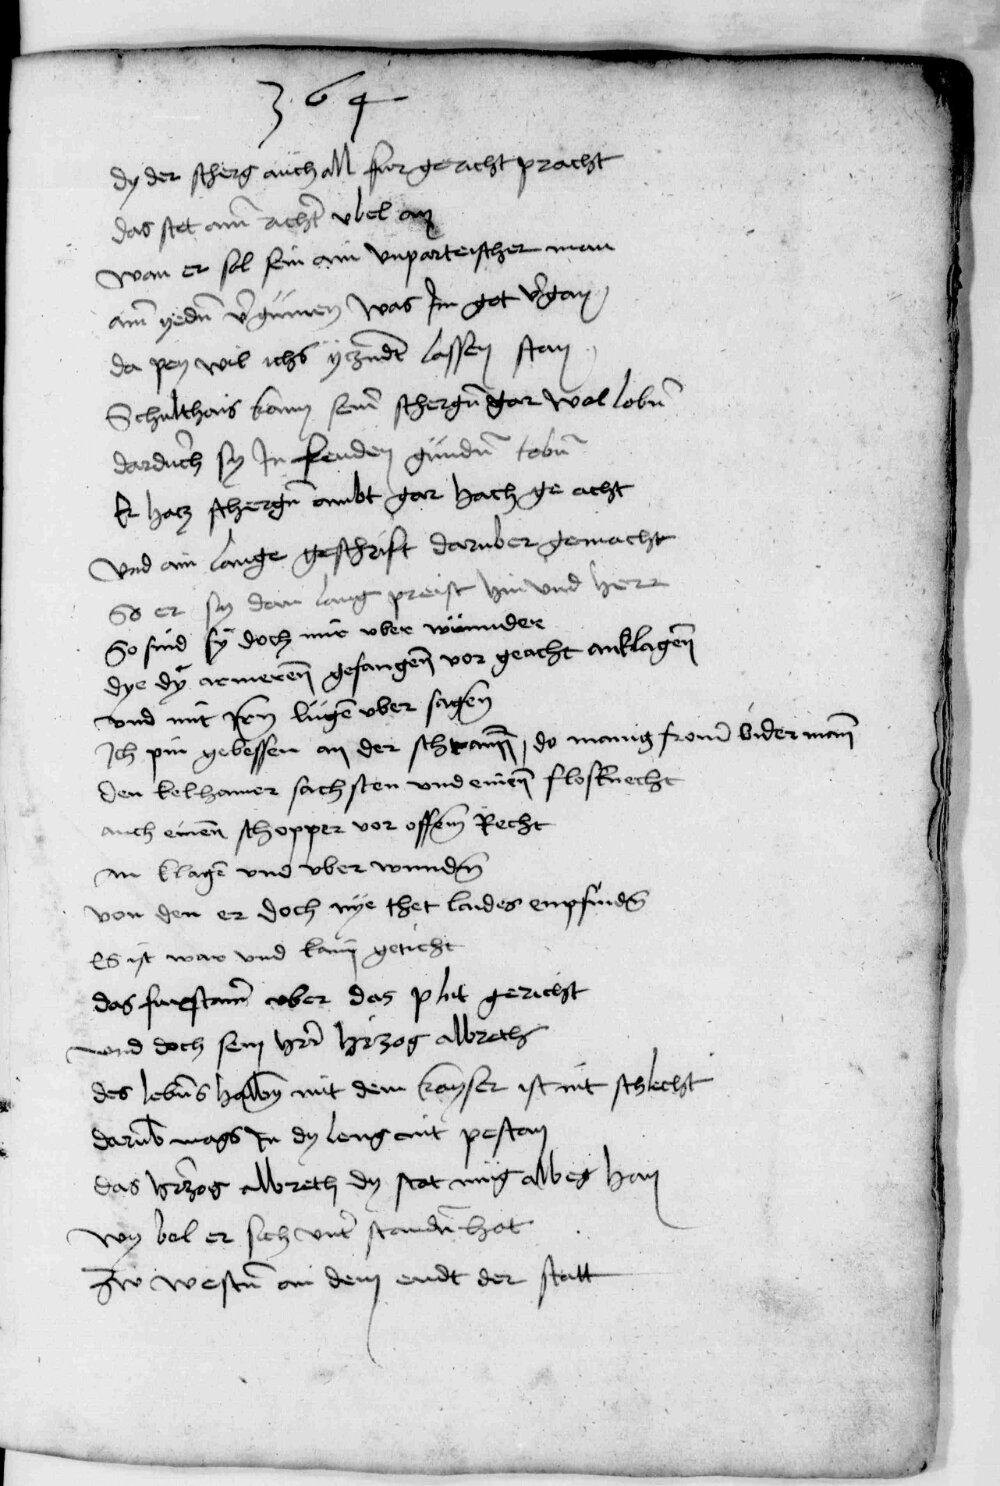 364
dy der scherg auch all fur gericht pracht
das stet aim richt͛ vbel an
wan er sol sein ain vnparteischer man
aim yedn̄ v͛gunnen was Im got v͛gan
da pey wil ichs yczundt lassen stan
Schulthais kann seinē schergn̄ gar wol lobn̄
dardurch sy In freuden gundn̄ tobn̄
Er hatz schergn̄ ambt gar hach ge acht
vnd ain lange geschrift daruber gemacht
So er sy dan lang preist hin vnd herr
So sind sy doch mir vber wunnder
dye dy armerenn gefangenn vor geacht anklagenn
vnd mit Iren lugen vber sagen
Ich pin gesessen an der schrannn do manig fromer bider mann
den kelhamer sachsten vnd einen flosknecht
auch einen schopper vor offem Recht
an klagn̄ vnd vber wundn̄
von den er doch nye thet laides enpfindn̄
Es ist war vnd kain geticht
das fur stam͛ vber das plut gericht
vnd doch sein her͛ herzog albrecht
des lebens halben mit dem kayser ist nit schlecht
darūb mags In dy leng nit pestan
das herzog albrecht dy stat mug albeg han
wy bol er sich vnt͛ standn̄ hat
Zw westn̄ an dem endt der statt